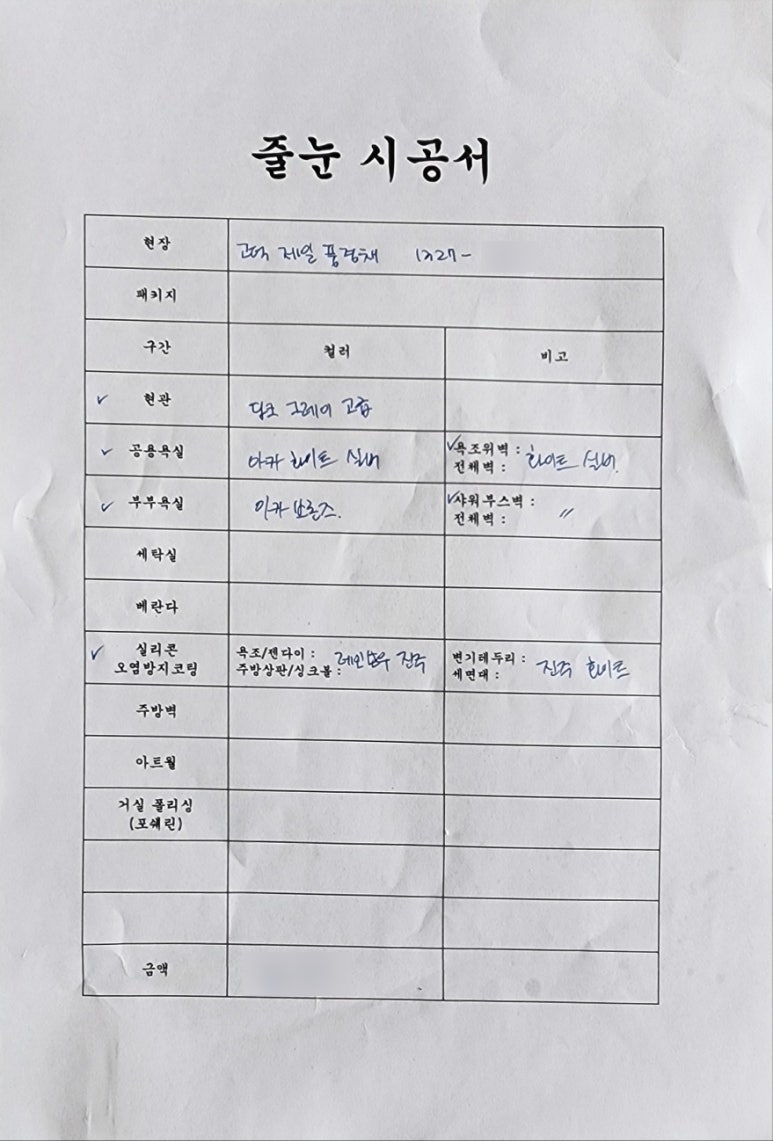 줄눈 시공서
현장 고덕 제일 풍경채 1327-
패키지
구간 컬러 비고
✓ 현관 딥초 그레이 고급
✓ 공용욕실 아카 화이트 실버 ✓욕조위벽 :
전체벽 : 화이트 실버.
✓ 부부욕실 아카 브론즈. ✓샤워부스벽 :
전체벽 : 〃
세탁실
베란다
✓ 실리콘
오염방지코팅
욕조/젠다이 : 레인보우 진주
주방상판/싱크볼 :
변기테두리 :
세면대 : 진주 화이트
주방벽
아트월
거실 폴리싱
(포쉐린)
금액